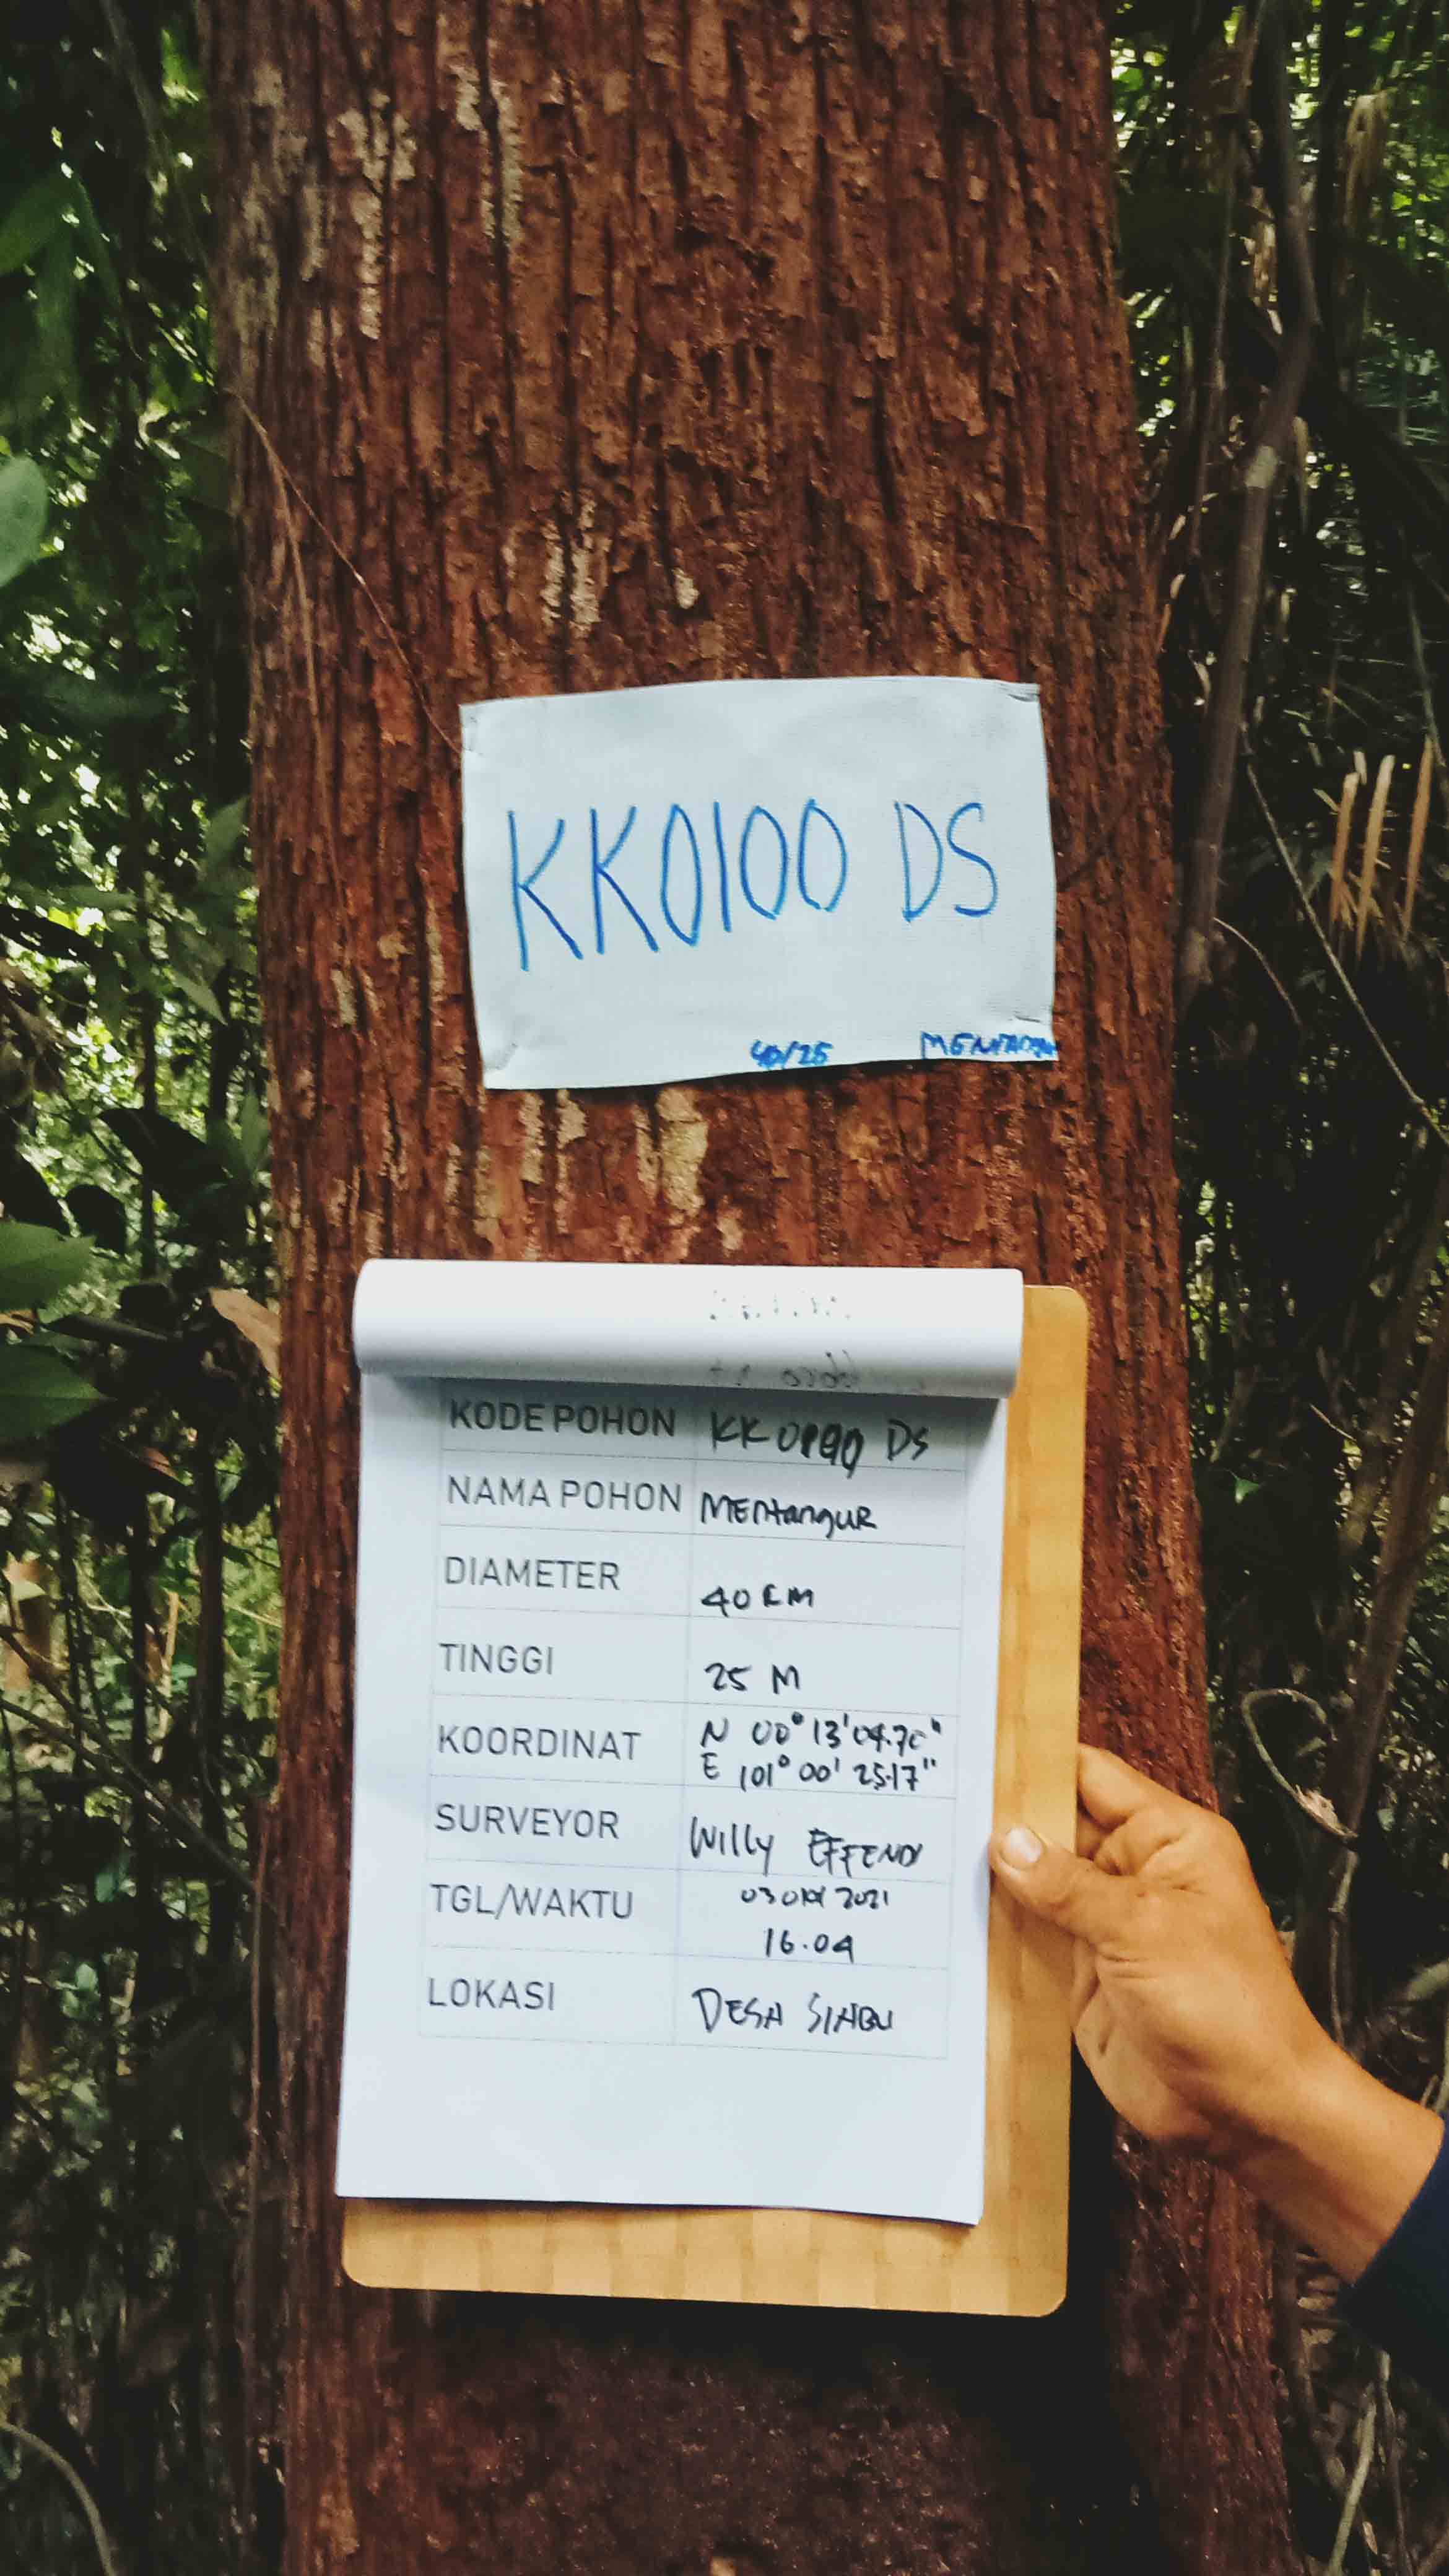 KK0100 DS
40/25 MENTANGUR
KODE POHON KK0100 DS
NAMA POHON MENtangUR
DIAMETER 40 CM
TINGGI 25 M
KOORDINAT N 00° 13' 04.70"
E 101° 00' 25.17"
SURVEYOR Willy EFFENDI
TGL/WAKTU 03 2021
16.04
LOKASI DESA SIABU